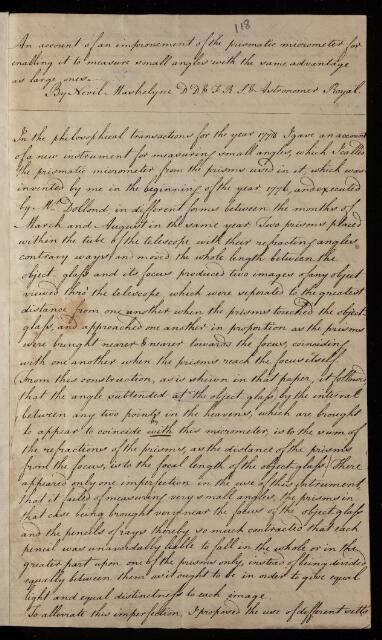 118
An account of an improvement of the prismatic micrometer for
enabling it to measure small angles with the same advantage
as large ones.
By Nevil Maskelyne D D & F. R. S & Astronomer Royal.
In the philosophical transactions for the year 1778 I gave an account
of a new instrument for measuring small angles, which I called
the prismatic micrometer from the prisms used in it, which was
invented by me in the beginning of the year 1776, and executed
by Mr. Dollond, in different forms between the months of
March and August in the same year. Two prisms placed
within the tube of the telescope with their refracting angles
contrary ways and moved the whole length between the
object-glass and its focus produced two images of any object
viewed thro' the telescope, which were seperated to the greatest
distance from one another when the prisms touched the object
glass, and approached one another in proportion as the prisms
were brought nearer & nearer towards the focus, coinciding
with one another when the prisms reach the focus itself.
From this construction, as is shewn in that paper, it follows
that the angle subtended at the object glass by the interval
between any two points in the heavens, which are brought
to appear to coincide with this micrometer, is to the sum of
the refractions of the prisms, as the distance of the prisms
from the focus, is to the focal length of the object glass. There
appeared only one imperfection in the use of this instrument,
that it failed of measuring very small angles, the prisms in
that case being brought very near the focus of the object glass
and the pencils of rays thereby so much contracted that each
pencil was unavoidably liable to fall in the whole or in the
greater part upon one of the prisms only, instead of being divided
equally between them as it ought to be in order to give equal
light and equal distinctness to each image.
To alleviate this imperfection, I proposed the use of different setts